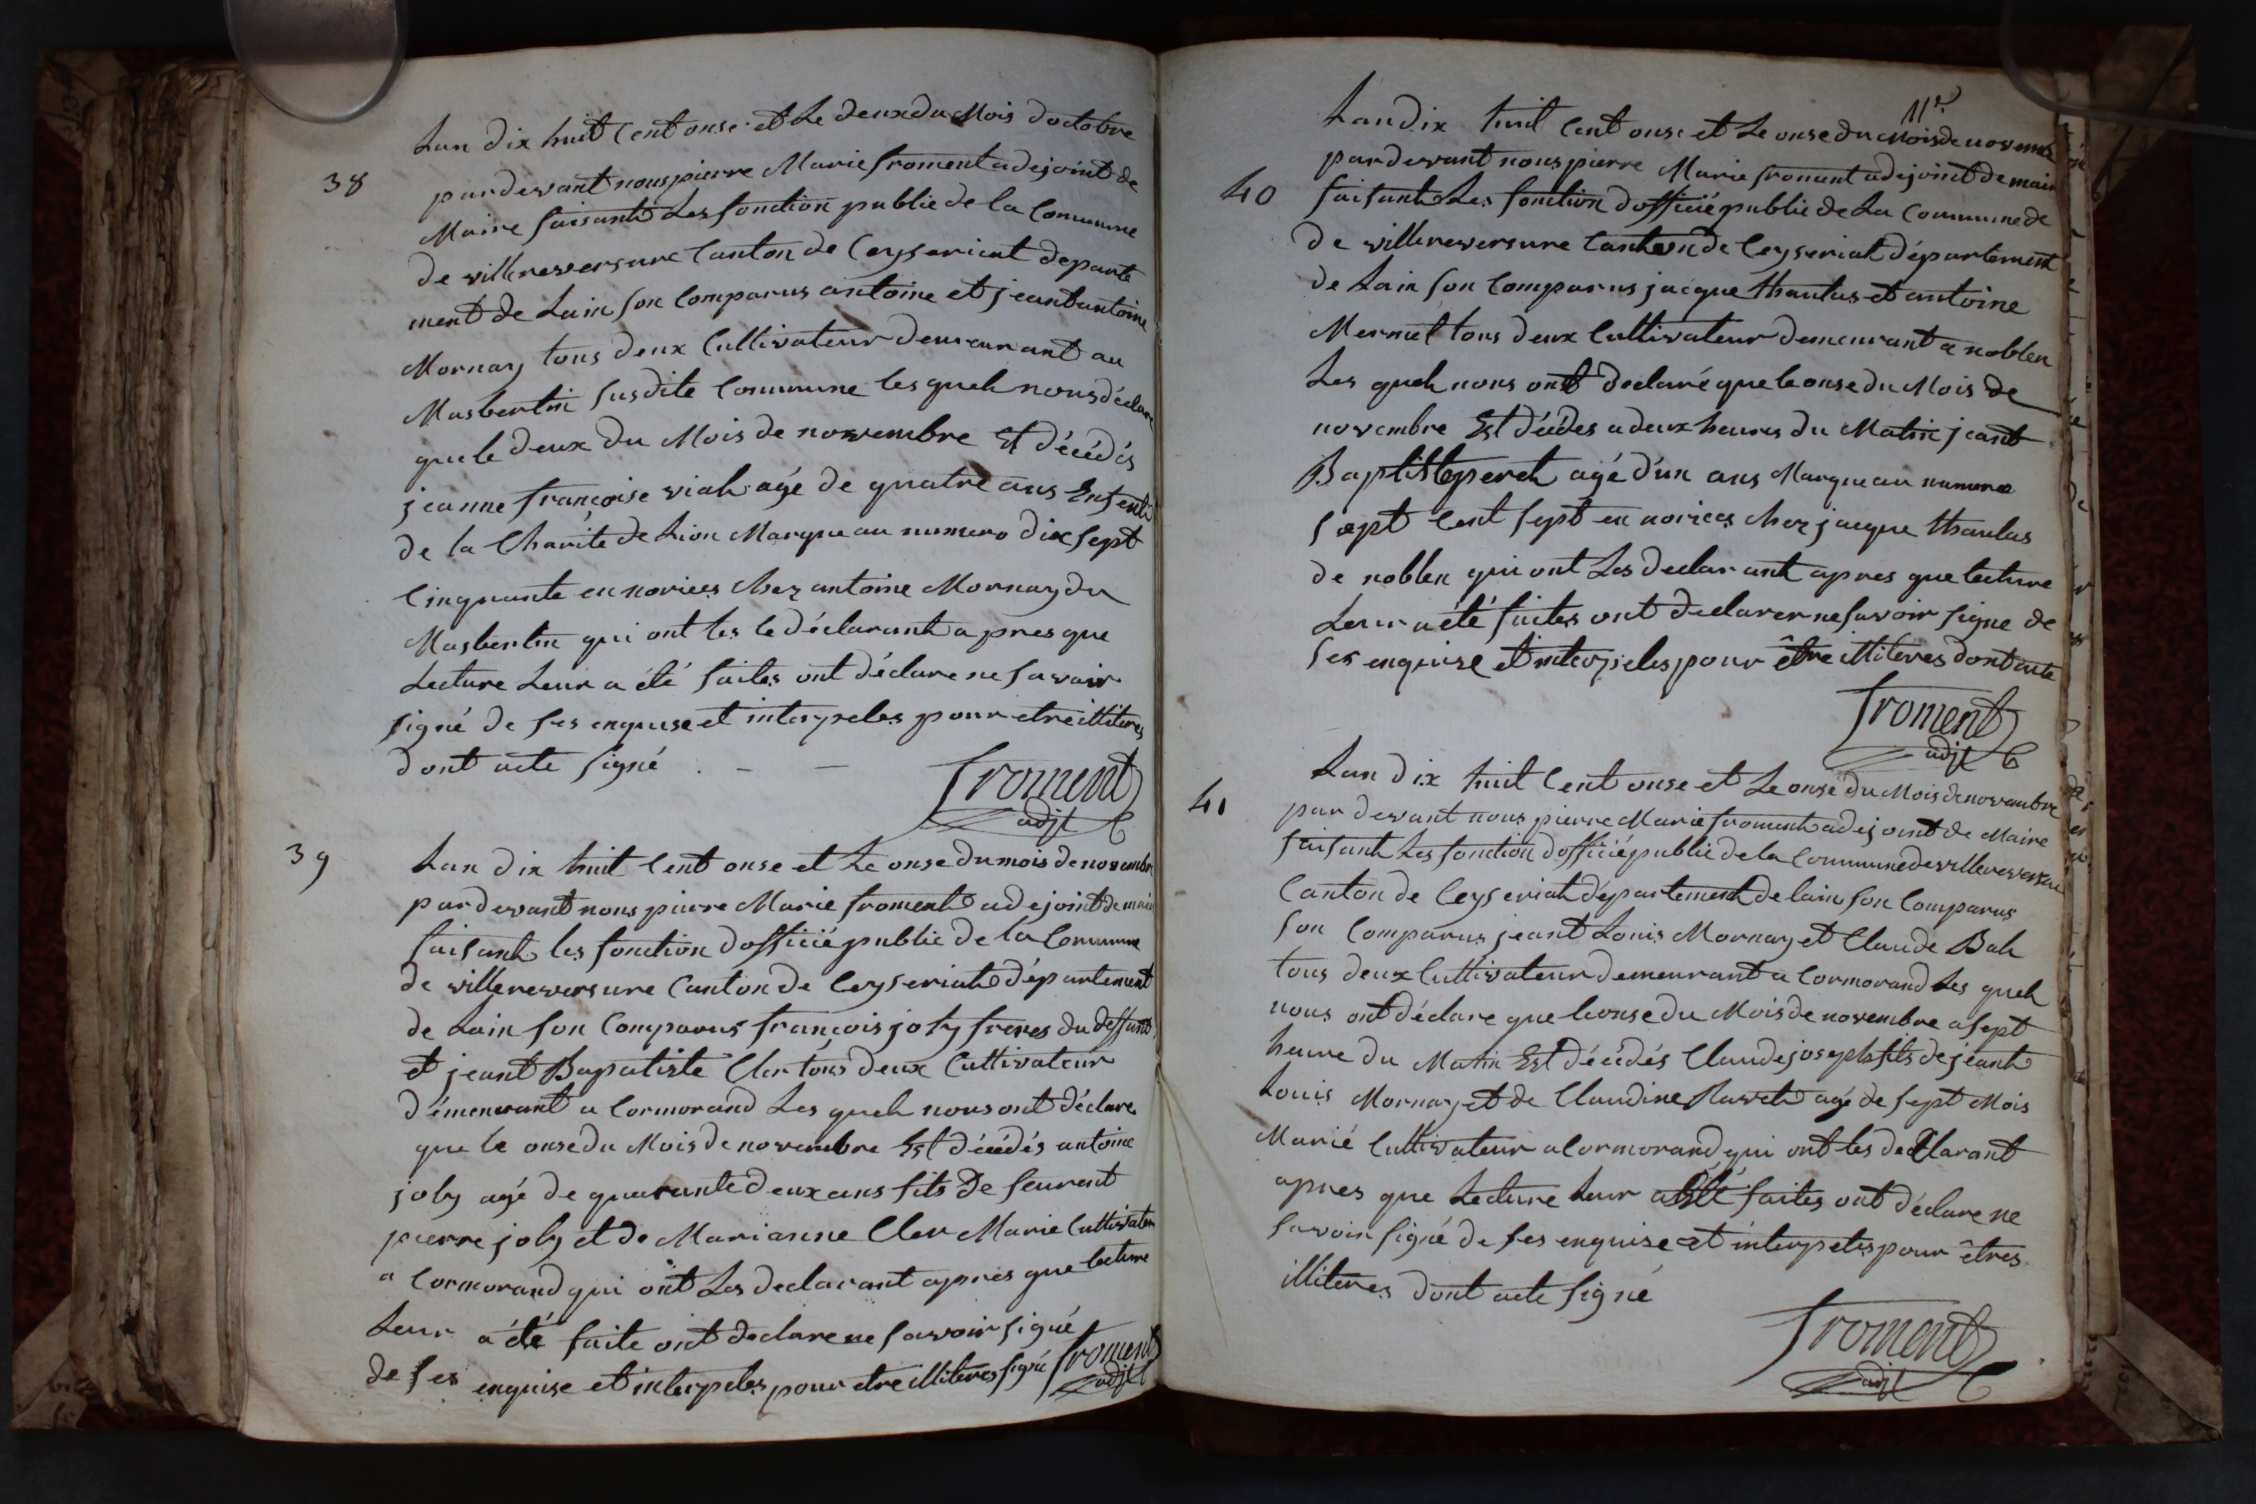 38
Lan dix huit Cent onse et Le deux du Mois doctobre
pardevant nous pierre Marie froment adejoint de
Maire faisant Les fonction public de la Commune
de villereversure Canton de Ceyseriat departe
ment de Lain son Comparus antoine et jeantantoine
Mornay tous deux Cultivateur demeurant au
Masbertin susdite Commune lesqueh nous déclare
que le deux du Mois de novembre Est décédés
jeanne françoise viah agé de quatre ans Enfent
de la Charité de Lion Marque au numero dix sept
Cinquante en norices chez antoine Mornay du
Masbertin qui ont les le déclarant apres que
Lecture Leur a été faites ont déclare ne savoir
signé de ses enquise et interpeles pour etre illiteres
dont acte signé
froment
adjt
39
Lan dix huit Cent onse et Le onse du mois de novembre
pardevant nous pierre Marie froment adejoint de maire
faisant les fonction dofficié public de la Commune
de villereversure Canton de Ceyseriat département
de Lain son Comparus françois joly freres du deffunt
et jeant Bapatiste Cler tous deux Cultivateur
démeurant a Cormorand Les queh nous ont déclare
que le onse du Mois de novembre Est décédés antoine
joly agé de quarante deux ans fils de feurent
pierre joly et de Marianne Cler Marie Cultivateur
a Cormorand qui ont Les declarant apres que lecture
Leur a été faite ont declare ne savoir signé
de ses enquise et interpeles pour etre illiteres signé froment
adjt
11e
40
Lan dix huit Cent onse et Le onse du Mois de novembre
pardevant nous pierre Marie froment adejoint de maire
faisant Les fonction dofficié public de La Commune de
de villereversure Canton de Ceyseriat département
de Lain son Comparus jacque thaulas et antoine
Mermet tous deux Cultivateur demeurant a noblen
Les queh nous ont declaré que le onse du Mois de
novembre Est décédes a deux heures du Matin jeant
Baptiste peret agé d'un ans Marque au numero
sept Cent sept en norices chez jacque thaulas
de noblen qui ont Les declarant apres que lecture
Leur a été faites ont declarer ne savoir signe de
ses enquise et interpeles pour être illiteres dont acte
froment
adjt
41
Lan dix huit Cent onse et Le onse du Mois de novembre
par devant nous pierre Marie froment adejoint de Maire
faisant Les fonction dofficié public de la Commune de villereversure
Canton de Ceyseriat département de lain son Comparus
son Comparus jeant Louis Mornay et Claude Bah
tous deux Cultivateur demeurant a Cormorand Les queh
nous ont déclare que le onse du Mois de novembre a sept
heure du Matin Est décédés Claude joseph fils de jeant
Louis Mornay et de Claudine Ravet agé de sept Mois
Marié Cultivateur a Cormorand qui ont les declarant
apres que Lecture Leur a été faites ont déclare ne
savoir signé de ses enquise et interpeles pour êtres
illiteres dont acte signé
froment
adjt